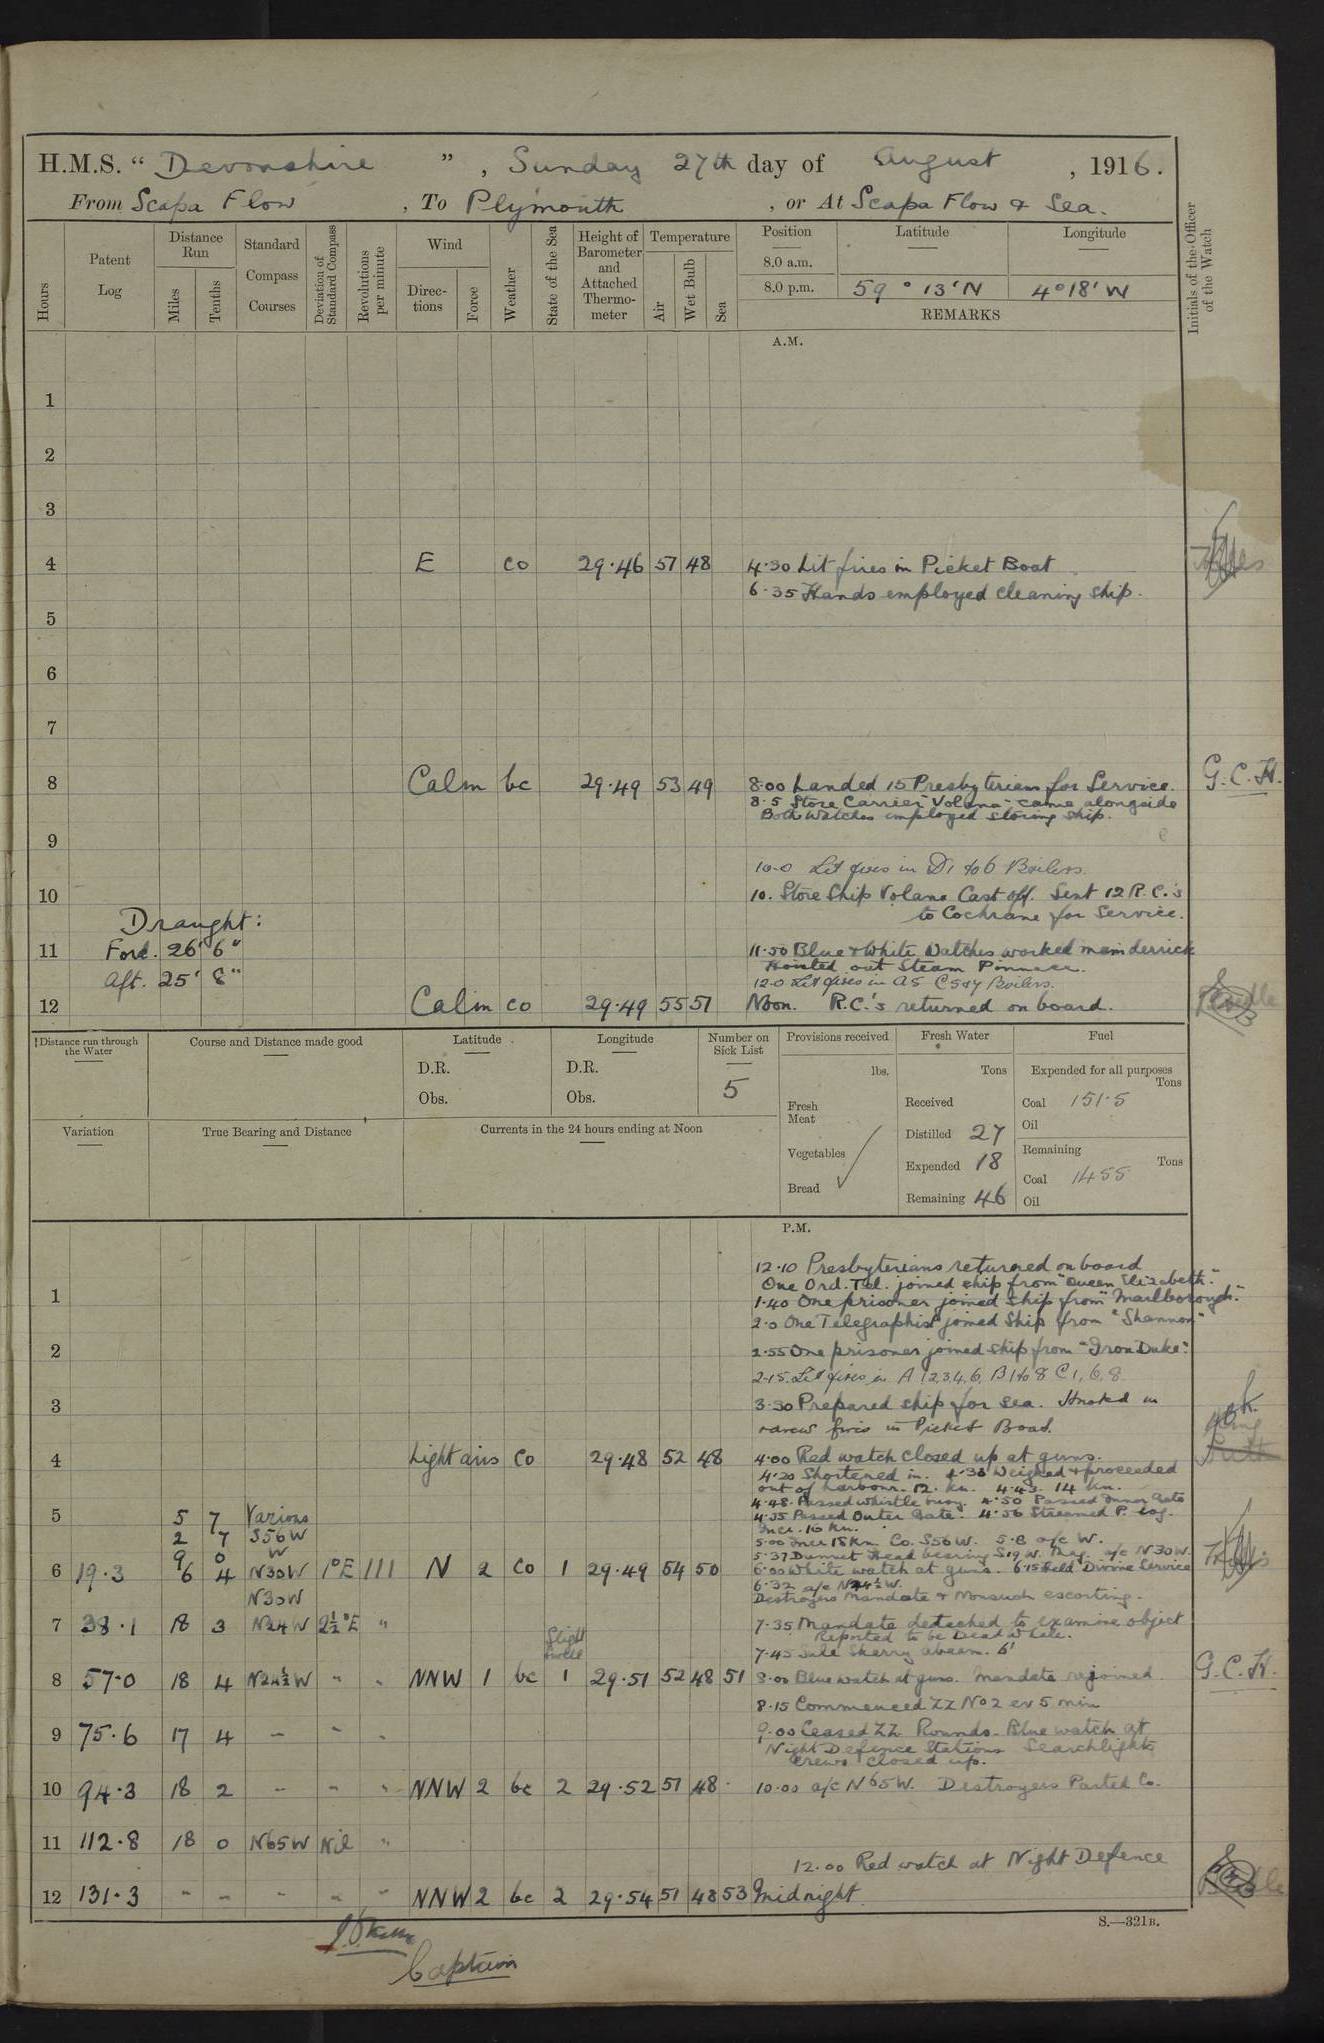 H.M.S. " Devonshire ", Sunday 27th day of August, 1916.
From Scapa Flow, To Plymouth, or At Scapa Flow & Sea.
Hours
Patent Log
Distance Run
Miles
Tenths
Standard Compass Courses
Deviation of Standard Compass
Revolutions per minute
Wind
Directions
Force
Weather
State of the Sea
Height of Barometer and Attached Thermometer
Temperature
Air
Wet Bulb
Sea
Position
Latitude
Longitude
8.0 a.m.
8.0 p.m. 59° 13' N 4° 18' W
REMARKS
Initials of the Officer of the Watch
A.M.
1
2
3
4 E co 29.46 51 48 4.30 Lit fires in Picket Boat
6.35 Hands employed cleaning ship.
5
6
7
8 Calm bc 29.49 53 49 8.00 Landed 15 Presbyterians for Service. G.C.H.
8.5 Store Carrier "Volana" came alongside
Both Watches employed storing ship.
9
10.0 Lit fires in D1 to 6 Boilers.
10 10. Store Ship Volana Cast off. Sent 12 R.C.'s
to Cochrane for Service.
Draught:
11 Ford. 26' 6" 11.50 Blue & White Watches worked main derrick
Hoisted out Steam Pinnace.
Aft. 25' 8" 12.0 Lit fires in A5 C5&7 Boilers.
12 Calm co 29.49 55 51 Noon. R.C.'s returned on board.
Distance run through the Water
Course and Distance made good
Latitude
D.R.
Obs.
Longitude
D.R.
Obs.
Number on Sick List
5
Provisions received
lbs.
Fresh Meat
Vegetables
Bread
Fresh Water
Tons
Received
Distilled 27
Expended 18
Remaining 46
Fuel
Expended for all purposes
Tons
Coal 151.5
Oil
Remaining
Tons
Coal 1455
Oil
Variation
True Bearing and Distance
Currents in the 24 hours ending at Noon
P.M.
12.10 Presbyterians returned on board
One Ord. Tel. joined ship from "Queen Elizabeth".
1 1.40 One prisoner joined ship from "Marlborough".
2.0 One Telegraphist joined Ship from "Shannon"
2 2.55 One prisoner joined ship from "Iron Duke".
2.15. Lit fires in A 1,2,3,4,6, B1 to 8 C1,6,8.
3 3.30 Prepared ship for sea. Hoisted in
& drew fires in Picket Boat.
4 Light airs co 29.48 52 48 4.00 Red watch closed up at guns.
4.20 Shortened in. 4.38 Weighed & proceeded
out of harbour. 12. Kn. 4.43. 14 Kn.
4.48. Passed whistle buoy. 4.50 Passed Inner Gate
5 5 7 Various 4.55 Passed Outer Gate. 4.56 Streamed P. log.
Incr. 16 kn.
2 7 S56W 5.00 Incr 18 Kn. Co. S56W. 5.8 a/c W.
9 0 W 5.37 Dunnet Head bearing S19W. Mag. a/c N30W.
6 19.3 6 4 N30W 1°E 111 N 2 co 1 29.49 54 50 6.00 White watch at guns. 6.15 Held Divine Service
6.32 a/c N24½W.
N30W Destroyers Mandate & Monarch escorting.
7 38.1 18 3 N24W 2½°E " 7.35 Mandate detached to examine object
Reported to be Dead Whale.
Slight swell
7.45 Sule Skerry abeam. 6'
8 57.0 18 4 N24½W " " NNW 1 bc 1 29.51 52 48 51 8.00 Blue watch at guns. Mandate rejoined. G.C.H.
8.15 Commenced ZZ No 2 ev 5 min
9 75.6 17 4 - - " 9.00 Ceased ZZ Rounds. Blue watch at
Night Defence Stations Searchlight
Crews closed up.
10 94.3 18 2 - - " NNW 2 bc 2 29.52 51 48 10.00 a/c N65W. Destroyers Parted Co.
11 112.8 18 0 N65W Nil "
12.00 Red watch at Night Defence
12 131.3 - - - - " NNW 2 bc 2 29.54 51 48 53 Midnight
S.—321B.
Captain